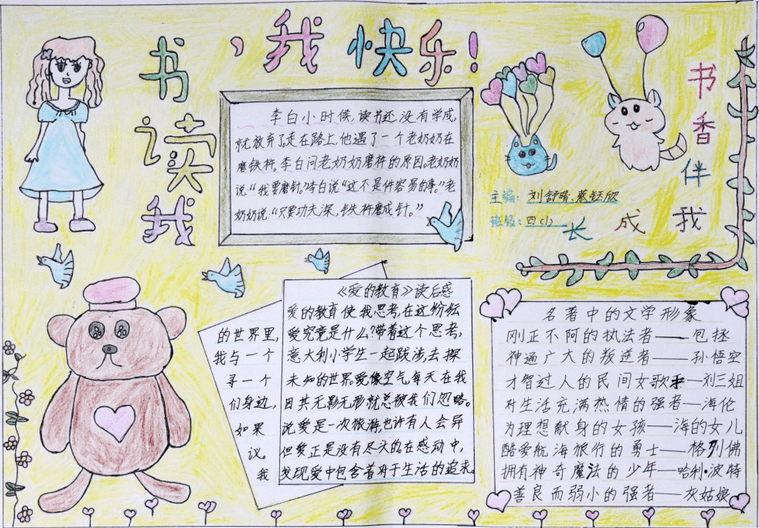 我读书，我快乐！
李白小时候，读书还没有学成，
就放弃了走在路上，他遇了一个老奶奶在
磨铁杵。李白问老奶奶磨杵的原因，老奶奶
说“我要磨针。”李白说“这不是件容易的事。”老
奶奶说：“只要功夫深，铁杵磨成针。”
书香伴我
成长
主编：刘舒晴
班级：四(1)
《爱的教育》读后感
爱的教育使我思考，在这纷纭
的世界里，爱究竟是什么？带着这个思考，
我与一个意大利小学生一起跋涉去探
寻一个未知的世界爱像空气每天在我
们身边，因其无影无形就总被我们忽略。
如果说爱是一次旅游，也许有人会异
议，但爱正是没有尽头的，在感动中，
我发现爱中包含着对于生活的追求
名著中的文学形象
刚正不阿的执法者——包拯
神通广大的叛逆者——孙悟空
才智过人的民间女歌手—刘三姐
对生活充满热情的强者—海伦
为理想献身的女孩—海的女儿
酷爱航海旅行的勇士—格列佛
拥有神奇魔法的少年—哈利·波特
善良而弱小的强者—灰姑娘